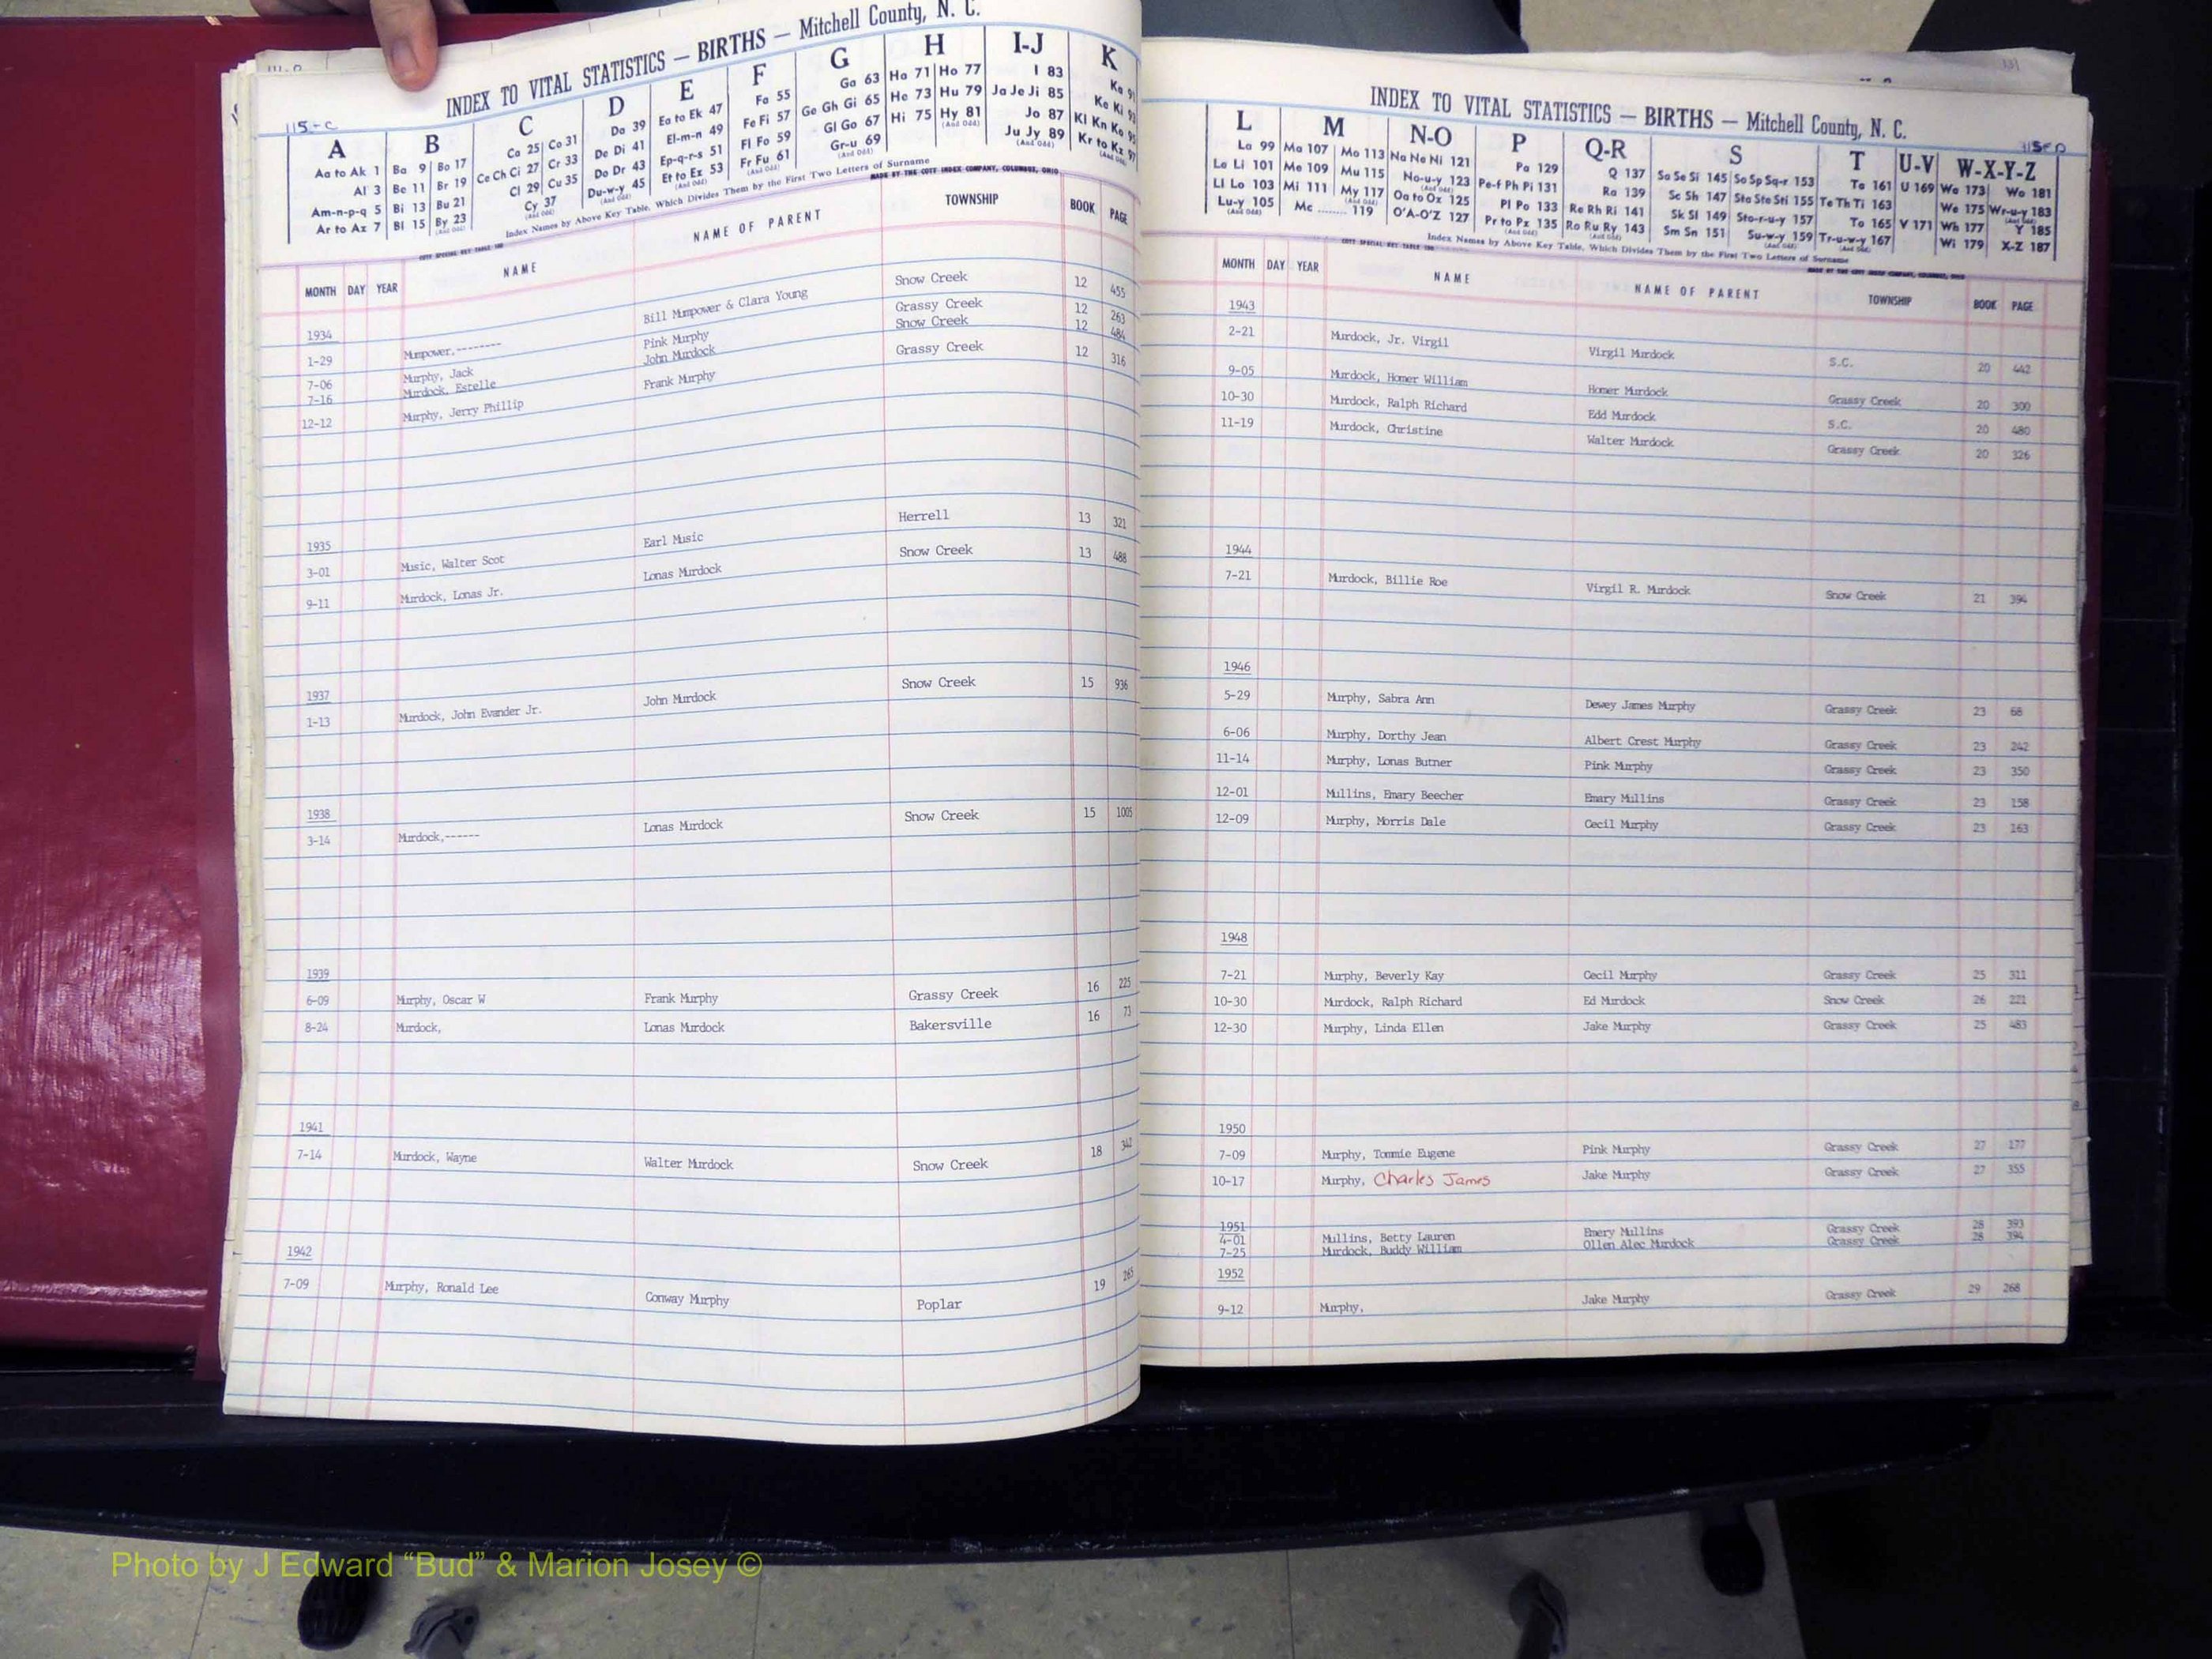 INDEX TO VITAL STATISTICS — BIRTHS — Mitchell County, N. C.
115-C
A B C D E F G H I-J K
Aa to Ak 1 Al 3 Am-n-p-q 5 Ar to Az 7
Ba 9 Be 11 Bi 13 Bl 15 Bo 17 Br 19 Bu 21 By 23 (And Odd)
Ca 25 Ce Ch Ci 27 Cl 29 Co 31 Cr 33 Cu 35 Cy 37 (And Odd)
Da 39 De Di 41 Do Dr 43 Du-w-y 45 (And Odd)
Ea to Ek 47 El-m-n 49 Ep-q-r-s 51 Et to Ez 53 (And Odd)
Fa 55 Fe Fi 57 Fl Fo 59 Fr Fu 61 (And Odd)
Ga 63 Ge Gh Gi 65 Gl Go 67 Gr-u 69 (And Odd)
Ha 71 He 73 Hi 75 Ho 77 Hu 79 Hy 81 (And Odd)
I 83 Ja Je Ji 85 Jo 87 Ju Jy 89 (And Odd)
Ka 91 Ke Ki 93 Kl Kn Ko 95 Kr to Kz 97 (And Odd)
Index Names by Above Key Table, Which Divides Them by the First Two Letters of Surname
COTT SPECIAL KEY TABLE 100
MADE BY THE COTT INDEX COMPANY, COLUMBUS, OHIO
MONTH DAY YEAR NAME NAME OF PARENT TOWNSHIP BOOK PAGE
1934
1-29 Mumpower,-------- Bill Mumpower & Clara Young Snow Creek 12 455
7-06 Murphy, Jack Pink Murphy Grassy Creek 12 263
7-16 Murdock, Estelle John Murdock Snow Creek 12 484
12-12 Murphy, Jerry Phillip Frank Murphy Grassy Creek 12 316
1935
3-01 Music, Walter Scot Earl Music Herrell 13 321
9-11 Murdock, Lonas Jr. Lonas Murdock Snow Creek 13 488
1937
1-13 Murdock, John Evander Jr. John Murdock Snow Creek 15 936
1938
3-14 Murdock,------ Lonas Murdock Snow Creek 15 1005
1939
6-09 Murphy, Oscar W Frank Murphy Grassy Creek 16 225
8-24 Murdock, Lonas Murdock Bakersville 16 73
1941
7-14 Murdock, Wayne Walter Murdock Snow Creek 18 342
1942
7-09 Murphy, Ronald Lee Conway Murphy Poplar 19 265
INDEX TO VITAL STATISTICS — BIRTHS — Mitchell County, N. C.
115-D
L M N-O P Q-R S T U-V W-X-Y-Z
La 99 Le Li 101 Ll Lo 103 Lu-y 105 (And Odd)
Ma 107 Me 109 Mi 111 Mc ........ 119 Mo 113 Mu 115 My 117 (And Odd)
Na Ne Ni 121 No-u-y 123 (And Odd) Oa to Ox 125 O'A-O'Z 127
Pa 129 Pe-f Ph Pi 131 Pl Po 133 Pr to Pz 135 (And Odd)
Q 137 Ra 139 Re Rh Ri 141 Ro Ru Ry 143 (And Odd)
Sa Se Si 145 Sc Sh 147 Sk Sl 149 Sm Sn 151 So Sp Sq-r 153 Sta Ste Sti 155 Sto-r-u-y 157 Su-w-y 159 (And Odd)
Ta 161 Te Th Ti 163 To 165 Tr-u-w-y 167 (And Odd)
U 169 V 171
Wa 173 We 175 Wh 177 Wi 179 Wo 181 Wr-u-y 183 (And Odd) Y 185 X-Z 187
Index Names by Above Key Table, Which Divides Them by the First Two Letters of Surname
COTT SPECIAL KEY TABLE 100
MADE BY THE COTT INDEX COMPANY, COLUMBUS, OHIO
MONTH DAY YEAR NAME NAME OF PARENT TOWNSHIP BOOK PAGE
1943
2-21 Murdock, Jr. Virgil Virgil Murdock S.C. 20 442
9-05 Murdock, Homer William Homer Murdock Grassy Creek 20 300
10-30 Murdock, Ralph Richard Edd Murdock S.C. 20 480
11-19 Murdock, Christine Walter Murdock Grassy Creek 20 326
1944
7-21 Murdock, Billie Roe Virgil R. Murdock Snow Creek 21 394
1946
5-29 Murphy, Sabra Ann Dewey James Murphy Grassy Creek 23 68
6-06 Murphy, Dorthy Jean Albert Crest Murphy Grassy Creek 23 242
11-14 Murphy, Lonas Butner Pink Murphy Grassy Creek 23 350
12-01 Mullins, Emary Beecher Emary Mullins Grassy Creek 23 158
12-09 Murphy, Morris Dale Cecil Murphy Grassy Creek 23 163
1948
7-21 Murphy, Beverly Kay Cecil Murphy Grassy Creek 25 311
10-30 Murdock, Ralph Richard Ed Murdock Snow Creek 26 221
12-30 Murphy, Linda Ellen Jake Murphy Grassy Creek 25 483
1950
7-09 Murphy, Tommie Eugene Pink Murphy Grassy Creek 27 177
10-17 Murphy, Charles James Jake Murphy Grassy Creek 27 355
1951
4-01 Mullins, Betty Lauren Emery Mullins Grassy Creek 28 393
7-25 Murdock, Buddy William Ollen Alec Murdock Grassy Creek 28 394
1952
9-12 Murphy, Jake Murphy Grassy Creek 29 268
Photo by J Edward “Bud” & Marion Josey ©